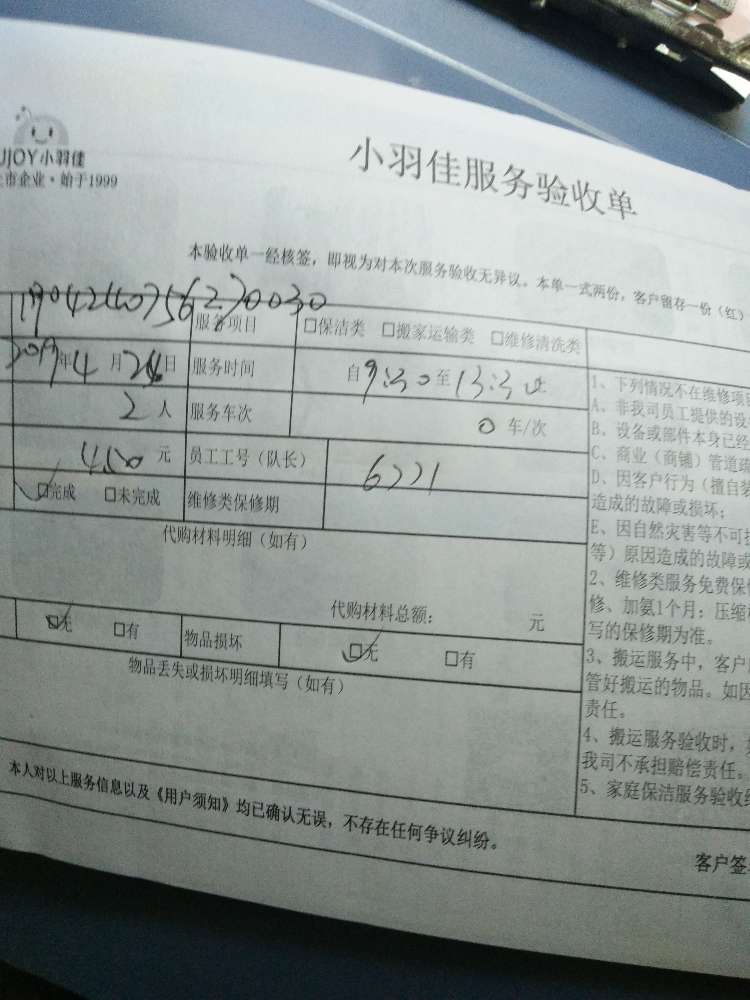 UJOY小羽佳
上市企业·始于1999
小羽佳服务验收单
本验收单一经核签，即视为对本次服务验收无异议。本单一式两份，客户留存一份（红）
服务项目 □保洁类 □搬家运输类 □维修清洗类
2019年4月26日 服务时间 自9:30至13:30止
2人 服务车次 0车/次
450元 员工工号（队长） 6221
□完成 □未完成 维修类保修期
代购材料明细（如有）
代购材料总额： 元
□无 □有 物品损坏 □无 □有
物品丢失或损坏明细填写（如有）
1、下列情况不在维修项
A、非我司员工提供的设
B、设备或部件本身已经
C、商业（商铺）管道疏
D、因客户行为（擅自装
造成的故障或损坏；
E、因自然灾害等不可抗
等）原因造成的故障或
2、维修类服务免费保修
修、加氨1个月；压缩
写的保修期为准。
3、搬运服务中，客户
管好搬运的物品。如因
责任。
4、搬运服务验收时，
我司不承担赔偿责任。
5、家庭保洁服务验收
本人对以上服务信息以及《用户须知》均已确认无误，不存在任何争议纠纷。
客户签